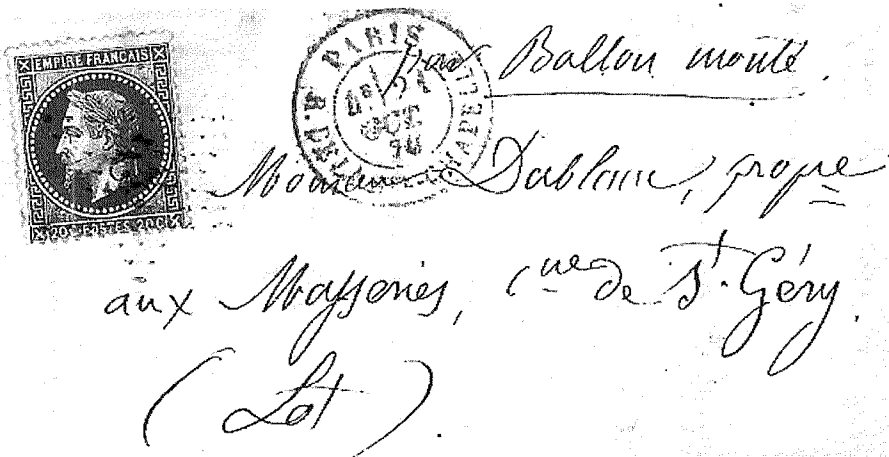 EMPIRE FRANCAIS
20 c POSTES 20 C
PARIS
OCT.
par Ballon monté.
Monsieur Dablanc, propre
aux Masseries, cne de St. Géry.
(Lot).